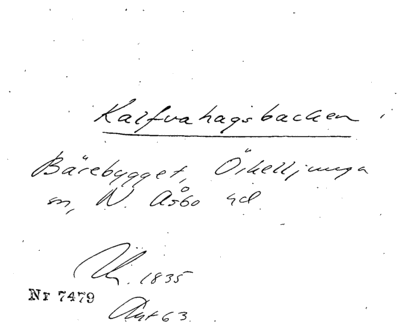 Kalfvahagsbacken
Bärebygget, Örkelljunga
sn, N. Åsbo hd
Nr 7479
1835
Akt 63.